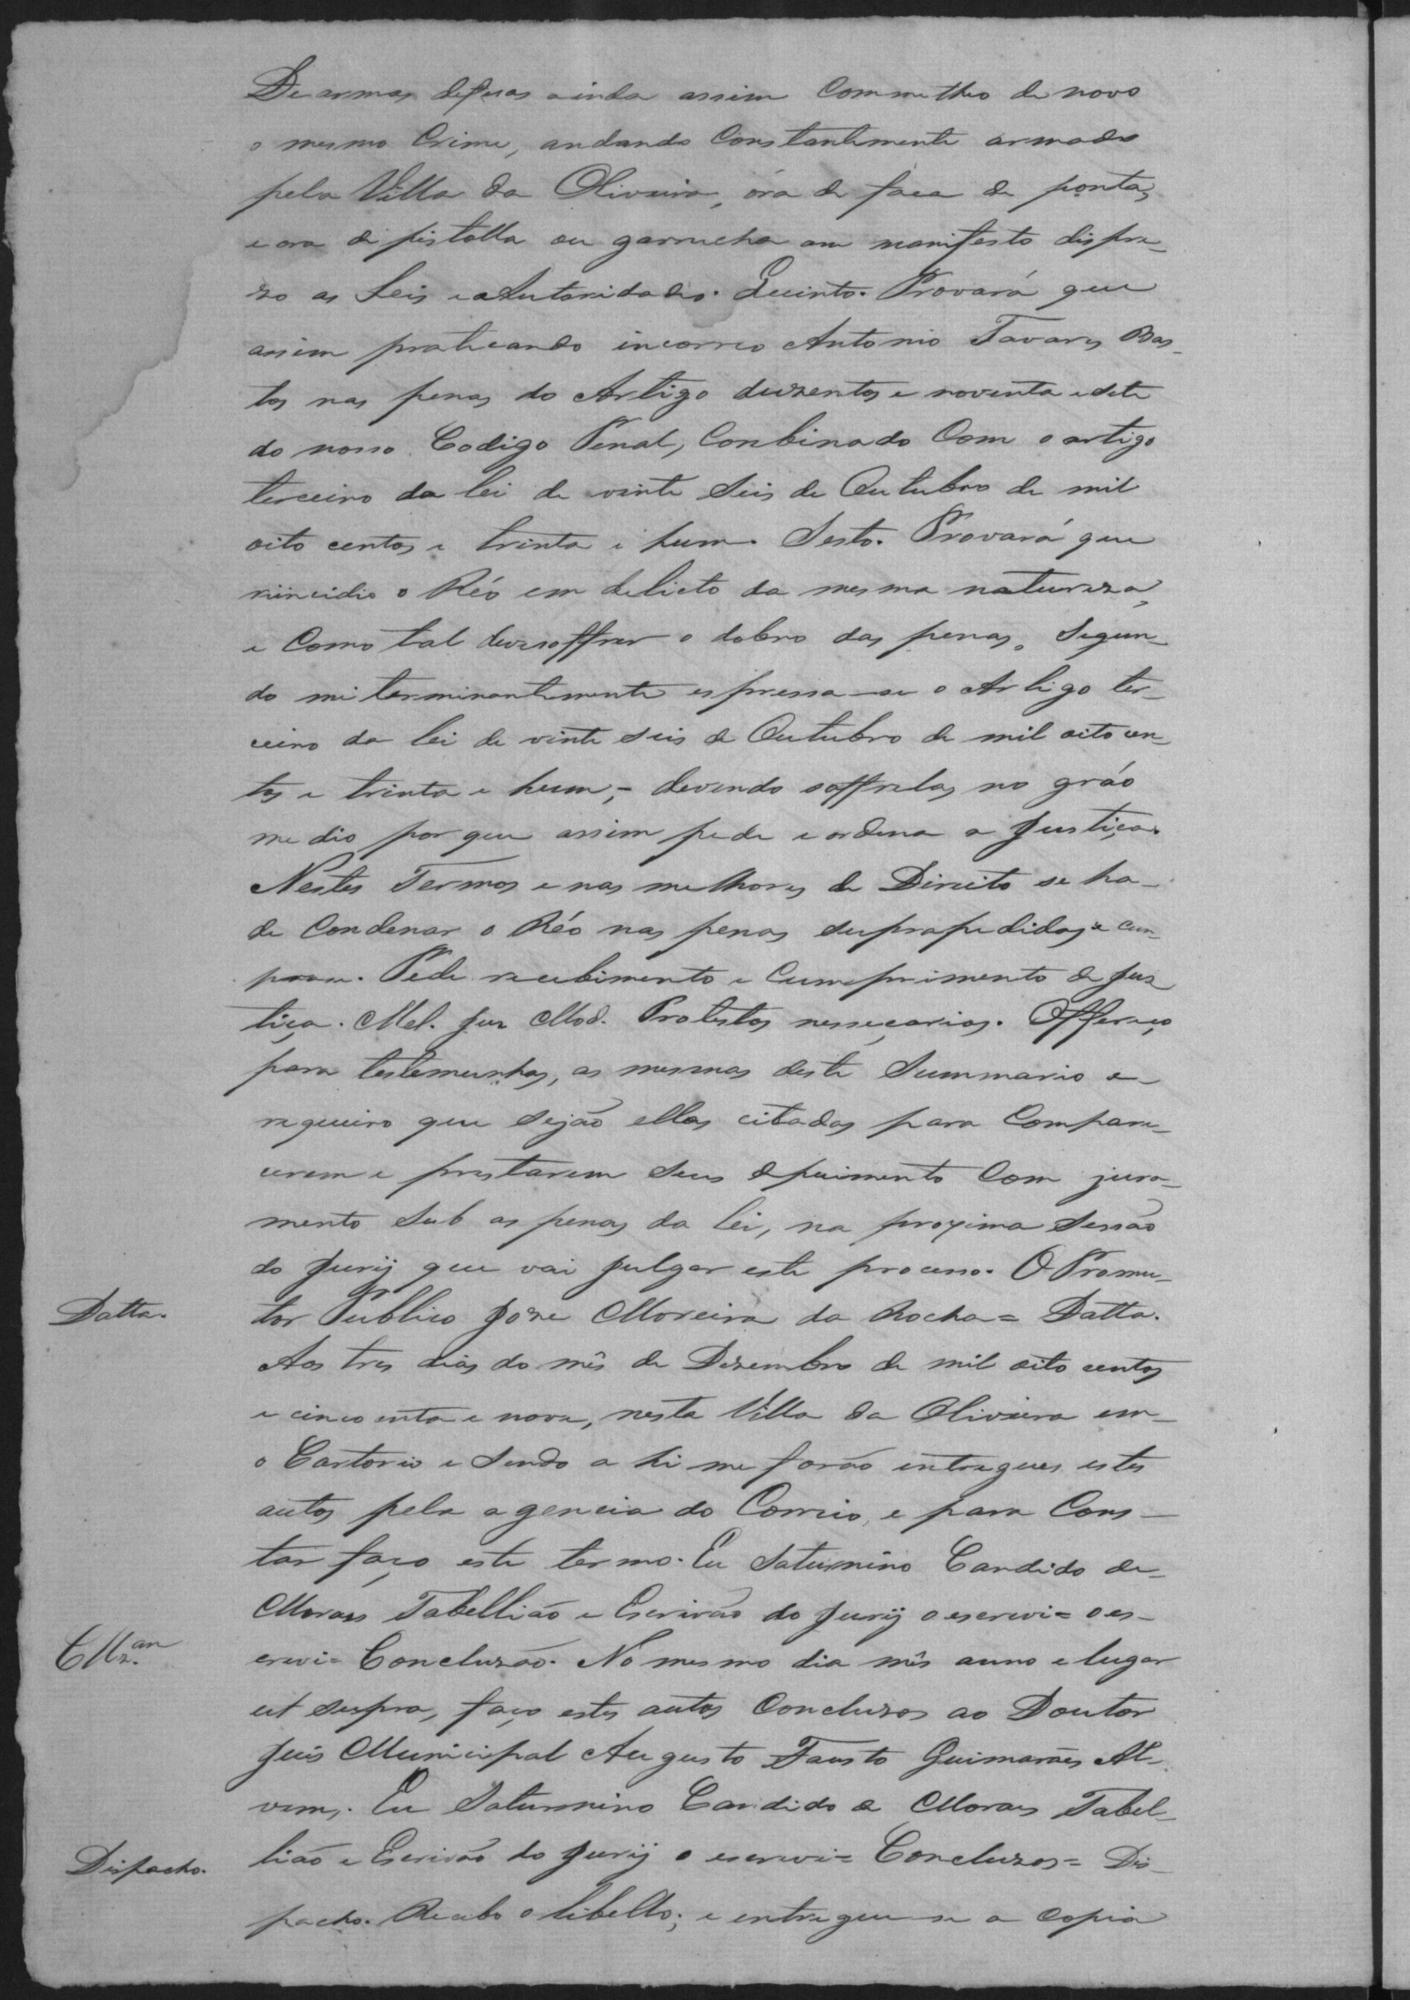 De armas defesas ainda assim Commetteo de novo
o mesmo Crime, andando Constantemente armado
pela Villa da Oliveira, óra de faca de ponta,
e ora de pistolla ou garrucha em manifesto dispre-
zo as Leis e as Autoridades. Quinto. Provará que
assim praticando incorreo Antonio Tavares Bas-
tos nas penas do Artigo duzentos e noventa e sete
do nosso Codigo Penal, Conbinado Com o artigo
terceiro da lei de vinte Seis de Outubro de mil
oito centos e trinta e hum. Sesto. Provará que
riincidio o Réo em delicto da mesma natureza,
e Como tal deve soffrer o dobro das penas, Segun-
do mi terminantemente espressa-se o Artigo ter-
ceiro da lei de vinte seis de Outubro de mil oito cen-
tos e trinta e hum,- devendo soffrelas no gráo
medio por que assim pede e ordena a Justiça.
Nestes Termos e nas melhores de Direito se ha-
de Condenar o Réo nas penas suprapedidas e cus-
Pede recebimento e Cumprimento de Jus
tiça. Mel. Jur Mod. Protestos nessecarios. Offereço
para testemunhas, as mesmas deste Summario e-
requeiro que sejão ellas citadas para Compare-
cerem e prestarem seus depuimento Com jura-
mento Sub as penas da lei, na proxima Sessão
do Jurij que vai Julgar este processo. O Promu-
Datta. tor Publico Joze Moreira da Rocha= Datta.
Aos tres dias do mês de Dezembro de mil oito centos
e cincoenta e nove, nesta Villa da Oliveira em-
o Cartorio e Sendo a hi me forão entregues estes
autos pela agencia do Correio, e para Cons-
tar faço este termo. Eu Saturnino Candido de-
Moraes Tabellião e Escrivão do Jurij o escrevi= o es-
Cllz.am crevi= Concluzão. No mesmo dia mês anno e lugar
ut supra, faço estes autos Concluzos ao Doutor
Juis Municipal Augusto Fausto Guimarães Al-
vim,. Eu Saturnino Candido de Moraes Tabel-
Dispacho. lião e Escrivão do Jurij o escrevi= Concluzos= Dis-
pacho. Recebo o libello; e entregue-se a copia